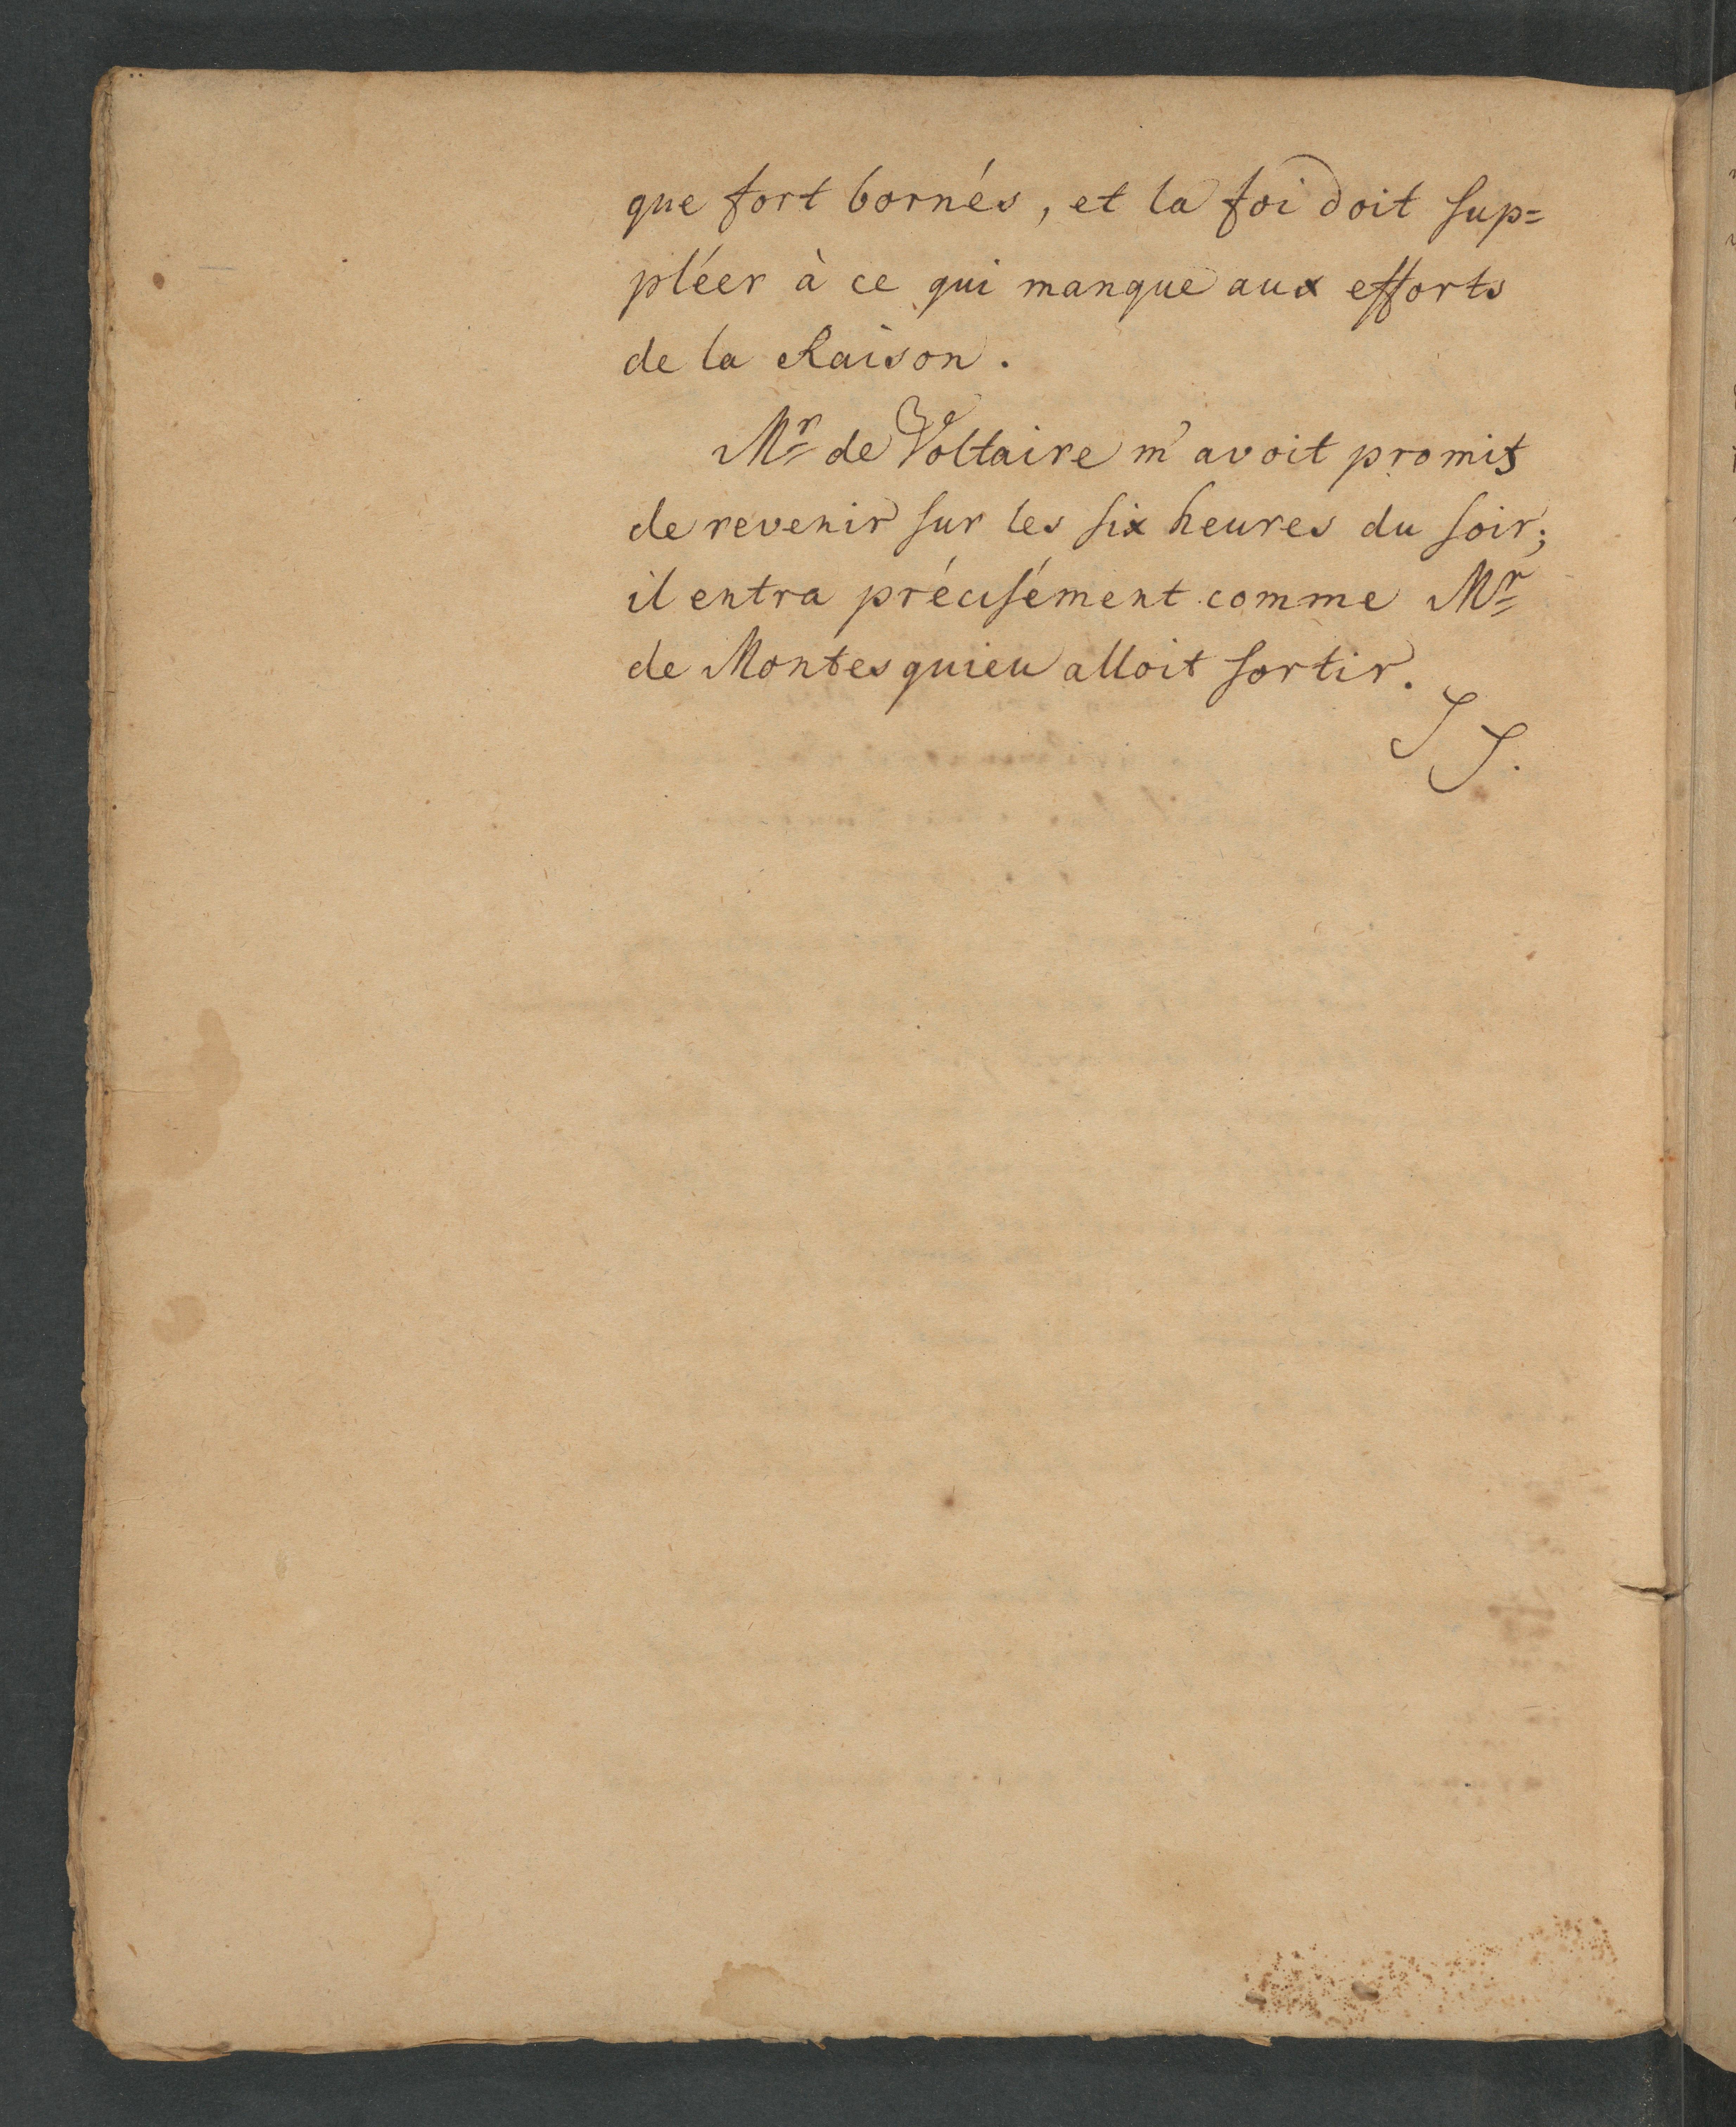 que fort bornés, et la foi doit sup=
pléer à ce qui manque aux efforts
de la Raison.
Mr de Voltaire m'avoit promis
de revenir sur les six heures du soir;
il entra précisément comme Mr
de Montesquieu alloit sortir.